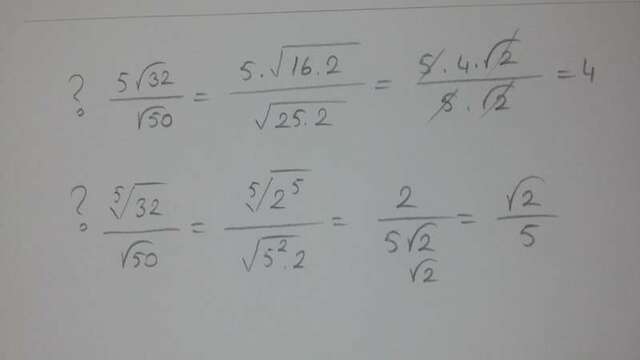 ? 5√32/√50 = 5.√16.2/√25.2 = 5.4.√2/5.√2 = 4
? ⁵√32/√50 = ⁵√2⁵/√5².2 = 2/5√2 √2 = √2/5